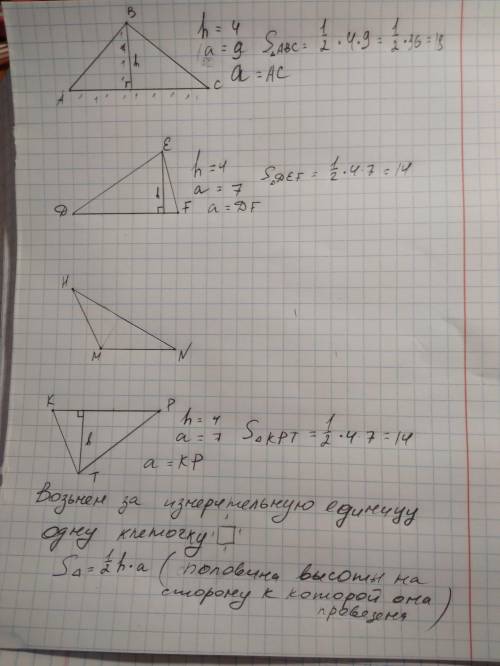 B
h = 4
a = 9
S△ABC = 1/2 · 4 · 9 = 1/2 · 36 = 18
a = AC
h
A
C
E
h = 4
a = 7
S△DEF = 1/2 · 4 · 7 = 14
a = DF
h
D
F
H
M
N
K
P
h = 4
a = 7
S△KPT = 1/2 · 4 · 7 = 14
a = KP
h
T
Возьнем за измерительную единицу
одну клеточку
S△ = 1/2 h · a ( половина высоты на
сторону к которой она
проведена )